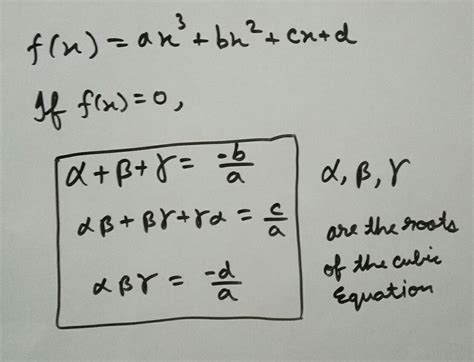 f(x) = ax³ + bx² + cx + d
If f(x) = 0,
α + β + γ = -b/a
αβ + βγ + γα = c/a
αβγ = -d/a
α, β, γ
are the roots
of the cubic
Equation